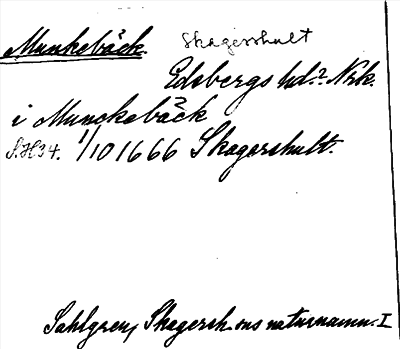 Munkebäck Skagershult
Edsbergs hd? Nrk.
i Munckebäck
S.H34. 1/10 1666 Skagershult.
Sahlgren, Skagersh. sns naturnamn. I